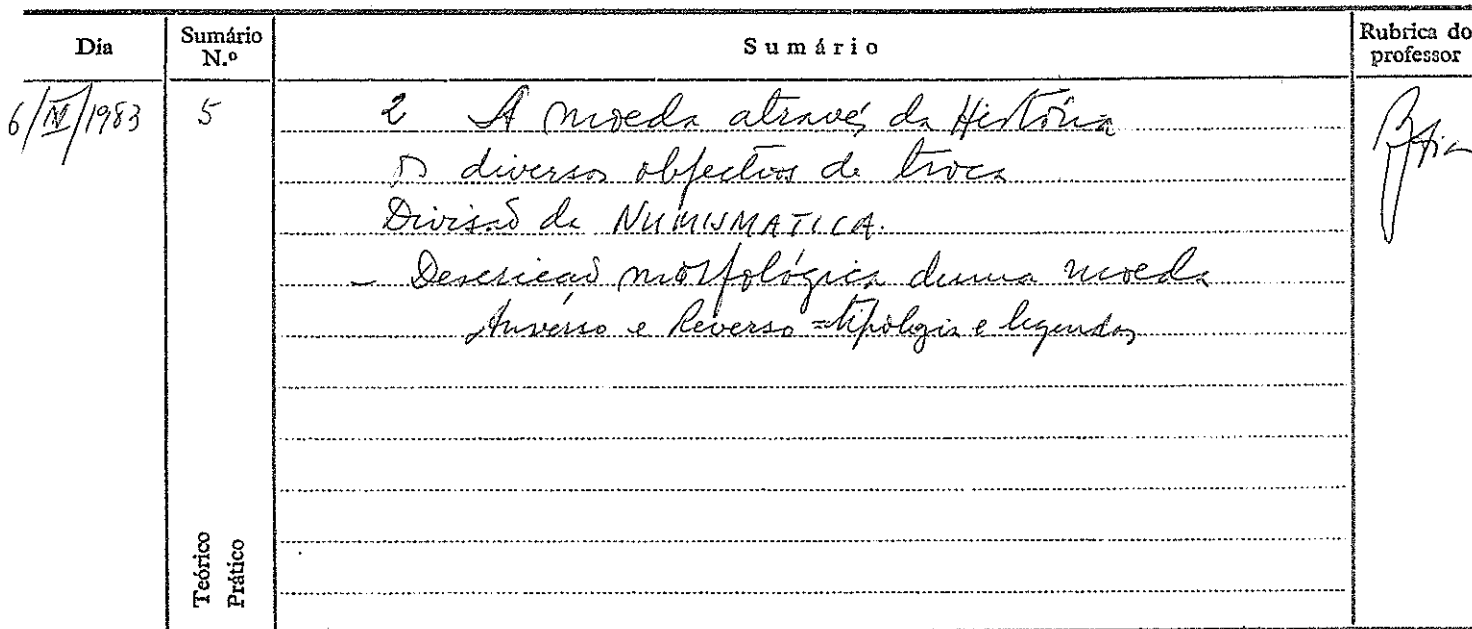 Dia Sumário N.º Sumário Rubrica do professor
6/IV/1983 5 2 A moeda através da História
Os diversos objectos de troca
Divisão da NUMISMATICA.
- Descrição morfológica duma moeda
Anverso e Reverso = tipologia e legendas
Teórico
Prático